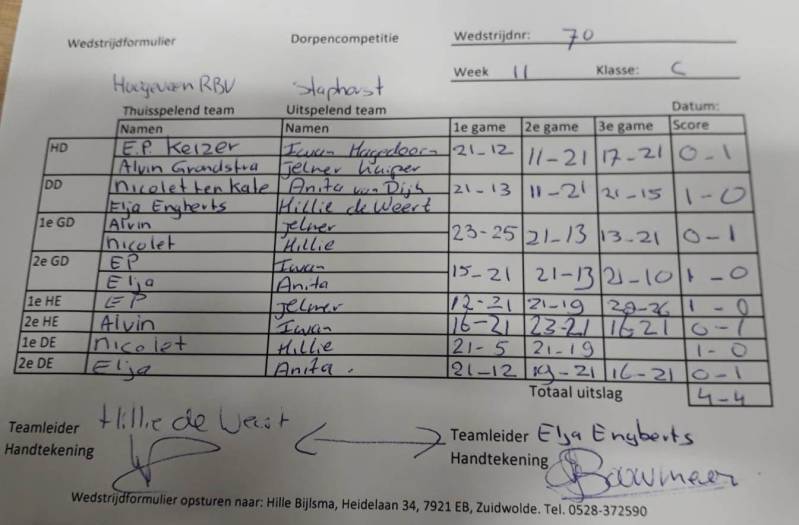 Wedstrijdformulier Dorpencompetitie Wedstrijdnr: 70
Week 11 Klasse: C
Hoogeveen RBV Staphorst
Thuisspelend team Uitspelend team Datum:
Namen Namen 1e game 2e game 3e game Score
HD E.P. Keizer Iwan Hagedoorn 21-12 11-21 17-21 0-1
Alvin Grandstra Jelmer Kuiper
DD Nicolet ten Kate Anita van Dijk 21-13 11-21 21-15 1-0
Elja Engberts Hillie de Weert
1e GD Alvin Jelmer 23-25 21-13 13-21 0-1
Nicolet Hillie
2e GD EP Iwan 15-21 21-13 21-10 1-0
Elja Anita
1e HE EP Jelmer 12-21 21-19 28-26 1-0
2e HE Alvin Iwan 16-21 23-21 16-21 0-1
1e DE Nicolet Hillie 21-5 21-19 1-0
2e DE Elja Anita. 21-12 19-21 16-21 0-1
Totaal uitslag 4-4
Teamleider Hillie de Weert Teamleider Elja Engberts
Handtekening Handtekening Bouwmeer
Wedstrijdformulier opsturen naar: Hille Bijlsma, Heidelaan 34, 7921 EB, Zuidwolde. Tel. 0528-372590